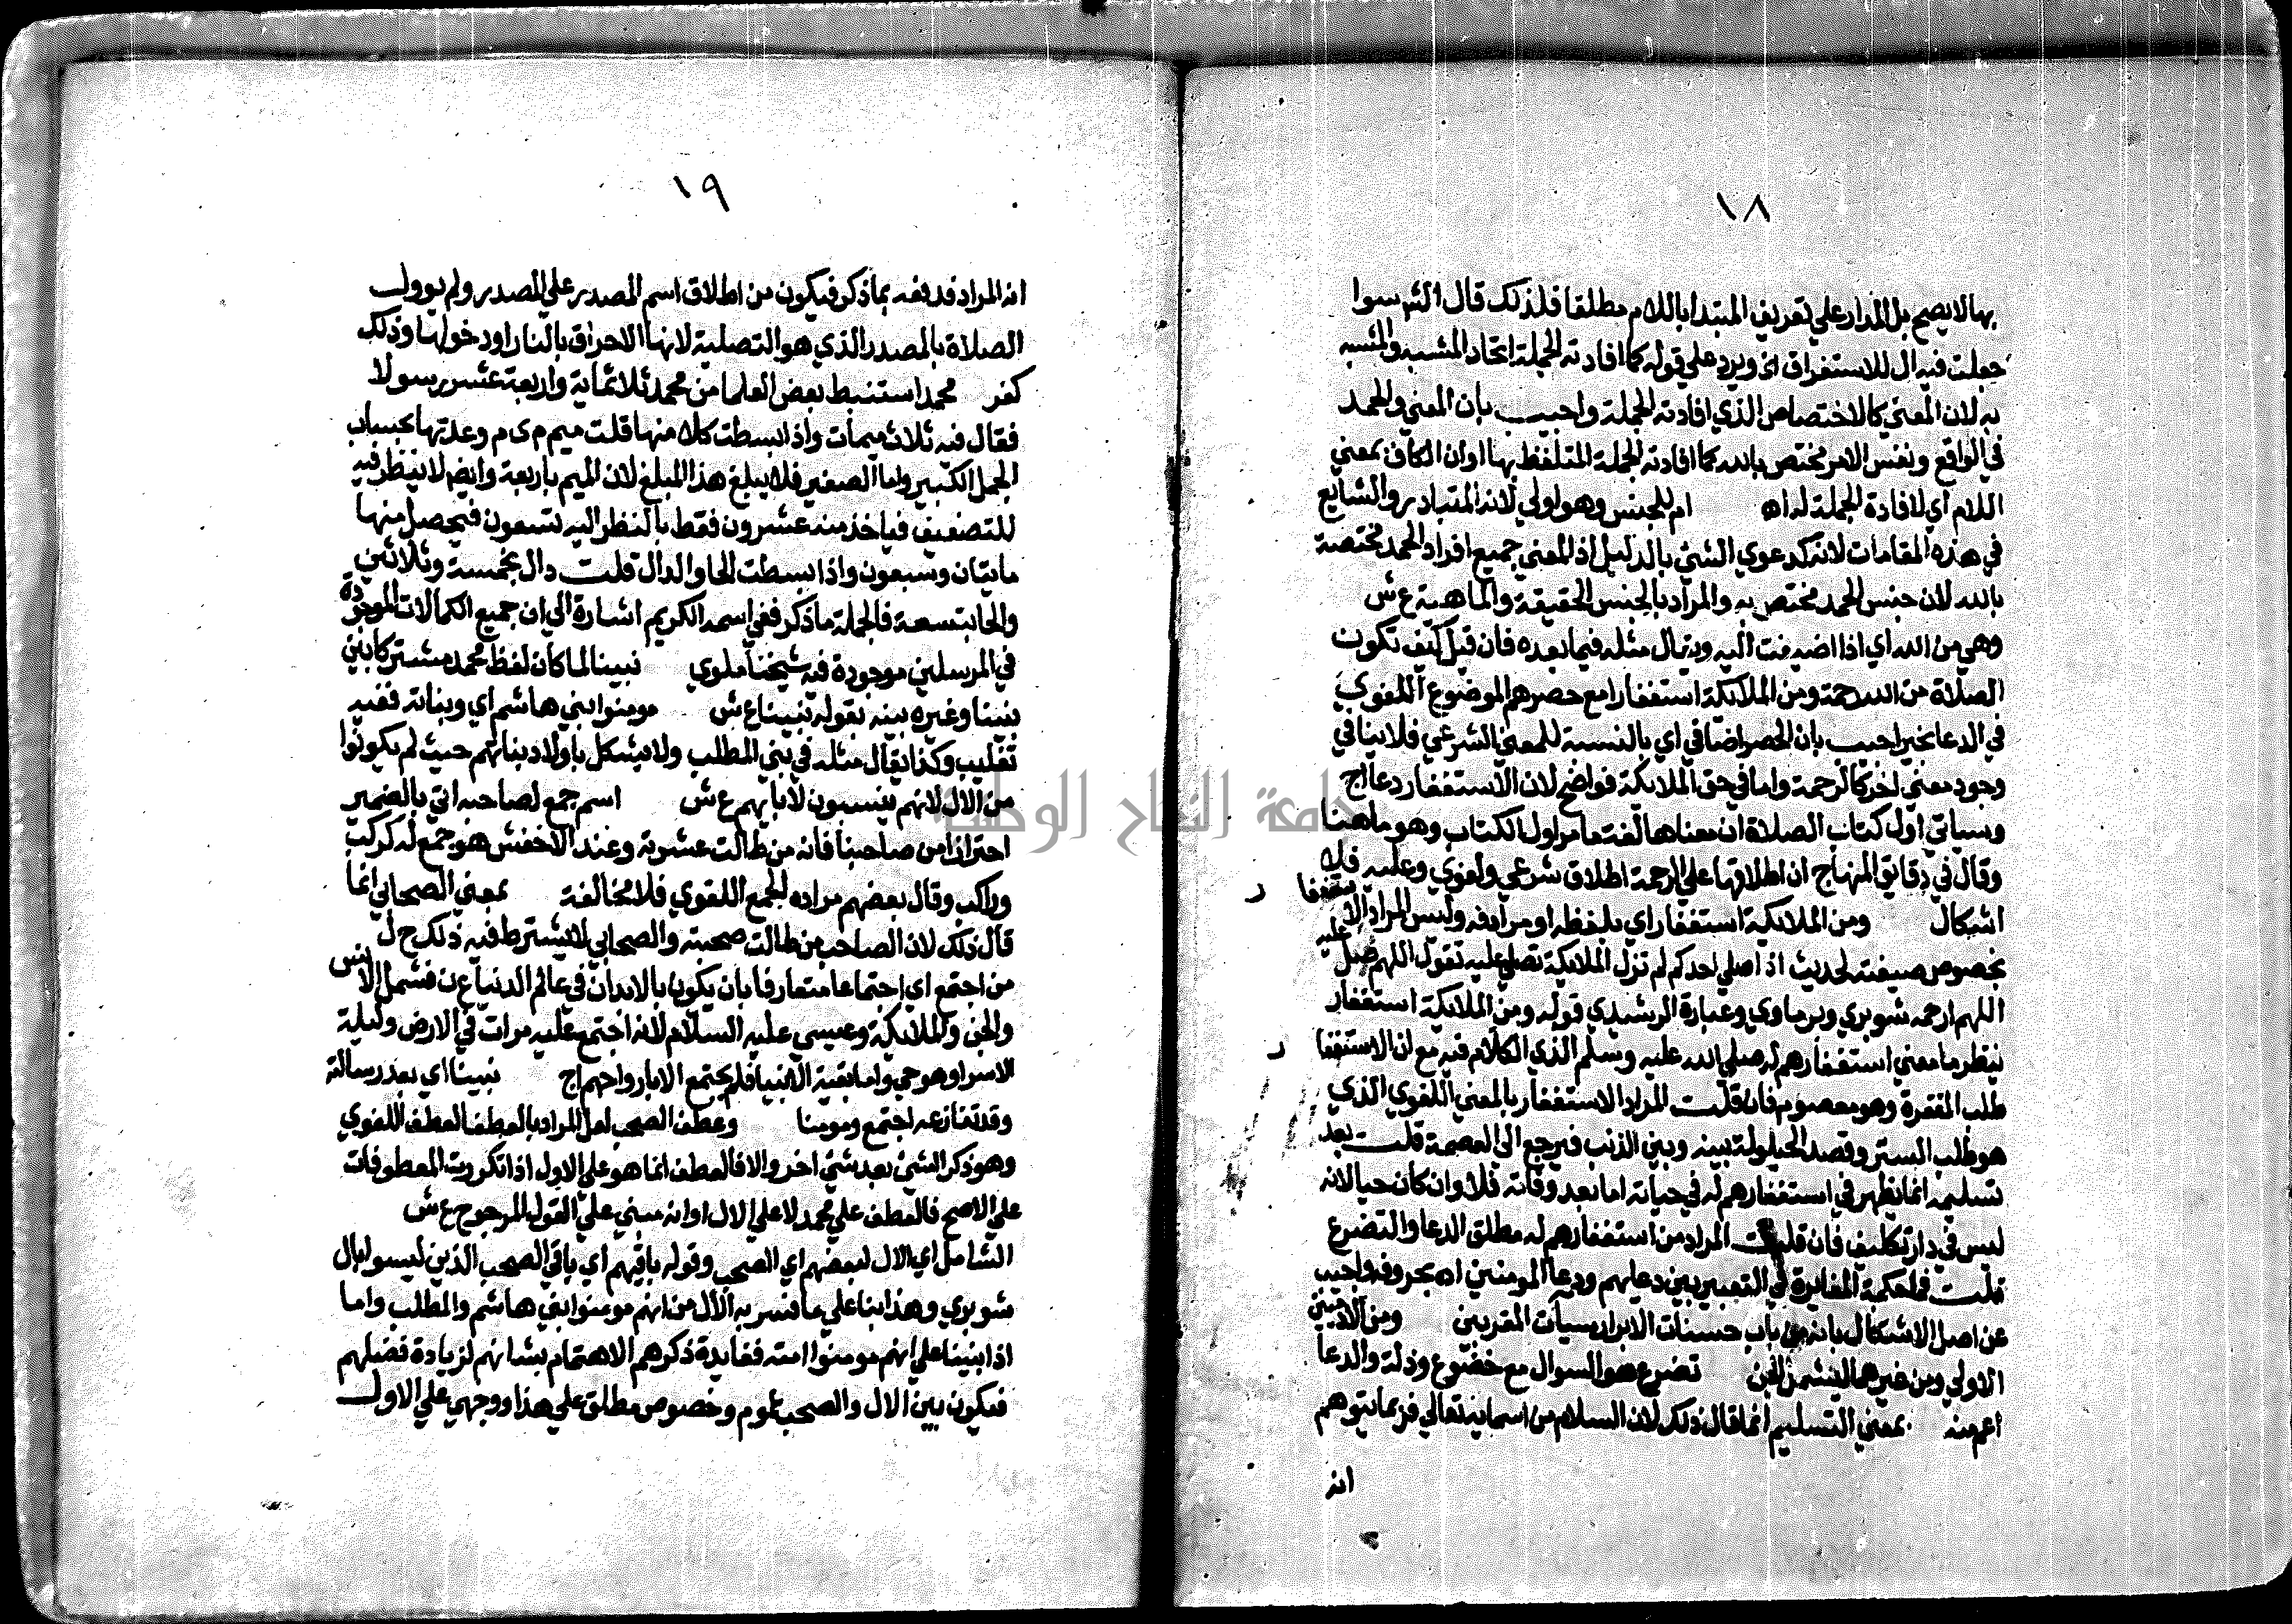 ١٨
بها لا يصح بل المدار علي تعريف المبتدا باللام مطلقا فلذلك قال الش سوا
جعلت فيه ال للاستغراق اي ويرد علي قوله كما افادته الجملة اتحاد المشبه والمشبه
به لان المعني كالاختصاص الذي افادته الجملة واجيب بان المعني والحمد
في الواقع ونفس الامر مختص بالله كما افادته الجملة المتلفظ بها او ان الكاف بمعني
اللام اي لافادة الجملة له اه ام للجنس وهو اولي لانه المتبادر والشايع
في هذه المقامات لانه كدعوي الشي بالدليل اذ المعني جميع افراد الحمد مختصة
بالله لان جنس الحمد مختص به والمراد بالجنس الحقيقة والماهية ع ش
وهي من الله اي اذا اضيفت اليه ويقال مثله فيما بعده فان قيل كيف تكون
الصلاة من الله رحمة ومن الملايكة استغفارا مع حصرهم الموضوع اللغوي
في الدعا بخير اجيب بان الحصر اضافي اي بالنسبة للمعني الشرعي فلا ينافي
وجود معني اخر كالرحمة واما في حق الملايكة فواضح لان الاستغفار دعا اج
وسياتي اول كتاب الصلاة ان معناها لغة ما مر اول الكتاب وهو ما هنا
وقال في دقائق المنهاج ان اطلاقها علي الرحمة اطلاق شرعي ولغوي وعليه فلا
اشكال ومن الملايكة استغفار اي بلفظه او مرادفه وليس المراد الاستغفار
بخصوص صيغته لحديث اذا صلي احدكم لم تزل الملايكة تصلي عليه تقول اللهم صل عليه
اللهم ارحمه شوبري وبرماوي وعبارة الرشيدي قوله ومن الملايكة استغفار
ينظر ما معني استغفارهم له صلي الله عليه وسلم الذي الكلام فيه مع ان الاستغفار
طلب المغفرة وهو معصوم فان قلت المراد الاستغفار بالمعني اللغوي الذي
هو طلب الستر وقصد الحيلولة بينه وبين الذنب فيرجع الي العصمة قلت بعد
تسليمه انما يظهر في استغفارهم له في حياته اما بعد وفاته فلا وان كان حيا لانه
ليس في دار تكليف فان قلت المراد من استغفارهم له مطلق الدعا والتضرع
قلت فما حكمة المغايرة في التعبير بين دعايهم ودعا المومنين اه بحروفه واجيب
عن اصل الاشكال بانه من باب حسنات الابرار سيأت المقربين ومن الادميين
الاولي ومن غيرهما ليشمل الجن تضرع هو السوال مع خضوع وذلة والدعا
اعم منه بمعني التسليم انما قال ذلك لان السلام من اسمايه تعالي فربما يتوهم
انه
١٩
انه المراد فدفعه بما ذكر فيكون من اطلاق اسم المصدر علي المصدر ولم يوول
الصلاة بالمصدر الذي هو التصلية لانها الاحراق بالنار او دخولها وذلك
كفر محمد استنبط بعض العلما من محمد ثلاثماية واربعة عشر رسولا
فقال فيه ثلاث ميمات واذا بسطت كلا منها قلت ميم م ي م وعدتها بحساب
الجمل الكبير واما الصغير فلا يبلغ هذا المبلغ لان الميم باربعة وايضا لا ينظر فيه
للتضعيف فياخذ منه عشرون فقط بالنظر اليه تسعون فيحصل منها
مايتان وسبعون واذا بسطت الحا والدال قلت دال بخمسة وثلاثين
والحا بتسعة فالجملة ما ذكر ففي اسمه الكريم اشارة الي ان جميع الكمالات الموجودة
في المرسلين موجودة فيه شيخنا ملوي نبينا لما كان لفظ محمد مشتركا بين
نبينا وغيره بينه بقوله نبينا ع ش مومنوا بني هاشم اي وبناته ففيه
تغليب وكذا يقال مثله في بني المطلب ولا يشكل باولاد بناتهم حيث لم يكونوا
من الال لانهم ينسبون لابايهم ع ش اسم جمع لصاحبه اتي بالضمير
احترازا من صاحبنا فانه من طالت عشرته وعند الاخفش هو جمع له كركب
وراكب وقال بعضهم مراده الجمع اللغوي فلا مخالفة بمعني الصحابي انما
قال ذلك لان الصاحب من طالت صحبته والصحابي لا يشترط فيه ذلك ح ل
من اجتمع اي اجتماعا متعارفا بان يكون بالابدان في عالم الدنيا ع ن فشمل الانس
والجن والملايكة وعيسي عليه السلام لانه اجتمع عليه مرات في الارض وليلة
الاسرا وهو حي واما بقية الانبيا فلم يجتمع الا بارواحهم اج نبينا اي بعد رسالته
وقد تنازعه اجتمع ومومنا وعطف الصحب لعل المراد بالعطف العطف اللغوي
وهو ذكر الشي بعد شي اخر والا فالعطف انما هو علي الاول اذا تكررت المعطوفات
علي الاصح فالعطف علي محمد لا علي الال او انه مبني علي القول المرجوح ع ش
الشامل اي الال لبعضهم اي الصحب وقوله باقيهم اي باقي الصحب الذين ليسوا بال
شوبري وهذا بنا علي ما فسر به الال من انهم مومنوا بني هاشم والمطلب واما
اذا بنينا علي انهم مومنوا امته ففايدة ذكرهم الاهتمام بشانهم لزيادة فضلهم
فيكون بين الال والصحب عموم وخصوص مطلق علي هذا ووجهي علي الاول
جامعة النجاح الوطنية